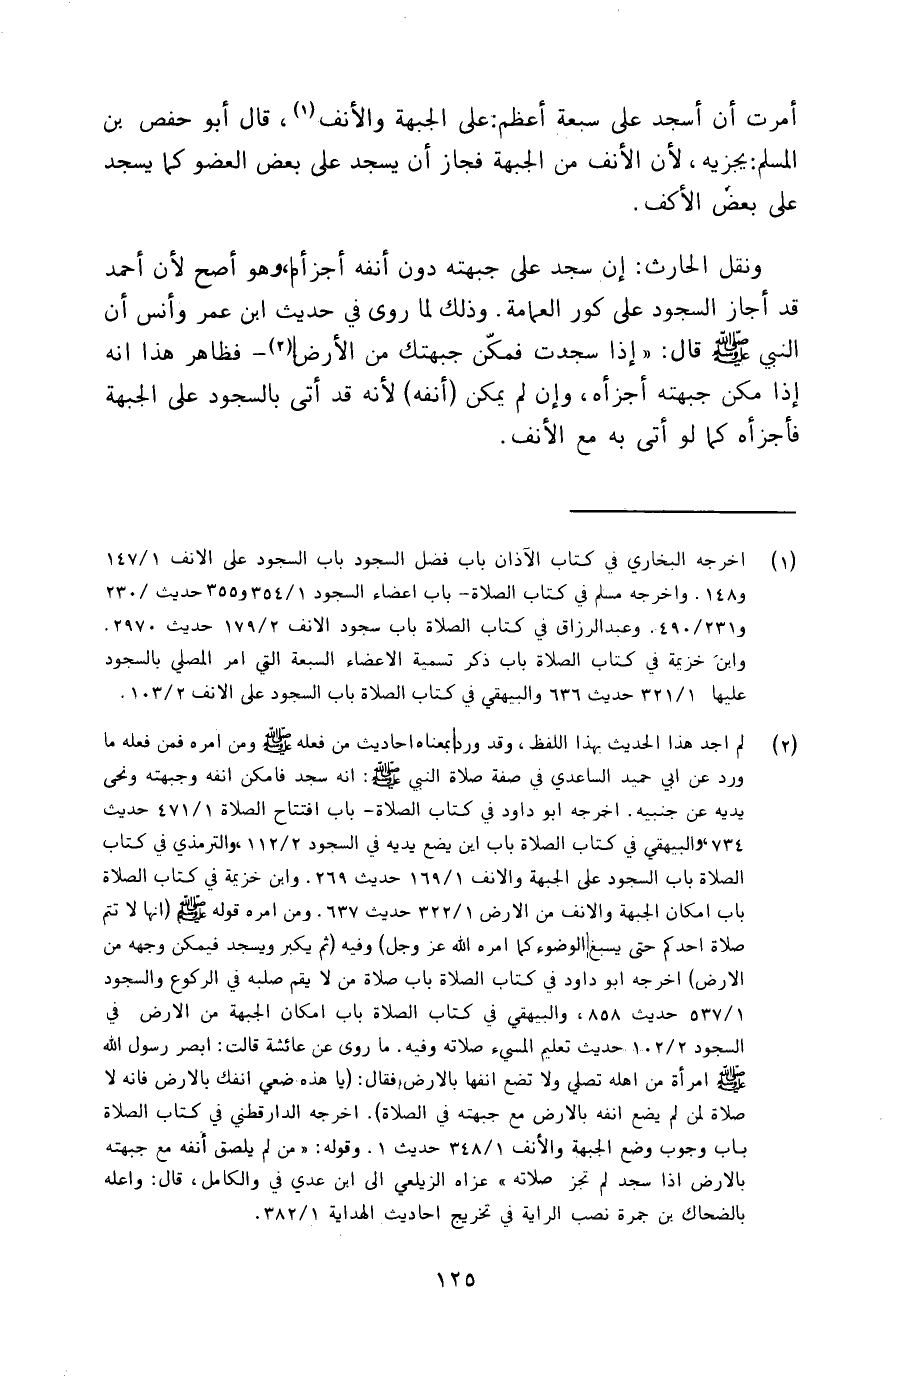 أمرت أن أسجد على سبعة أعظم:على الجبهة والأنف(١)، قال أبو حفص بن
المسلم:يجزيه، لأن الأنف من الجبهة فجاز أن يسجد على بعض العضو كما يسجد
على بعض الأكف.
ونقل الحارث: إن سجد على جبهته دون أنفه أجزأه،وهو أصح لأن أحمد
قد أجاز السجود على كور العمامة. وذلك لما روى في حديث ابن عمر وأنس أن
النبي ﷺ قال: «إذا سجدت فمكّن جبهتك من الأرض(٢)- فظاهر هذا انه
إذا مكن جبهته أجزأه، وإن لم يمكن (أنفه) لأنه قد أتى بالسجود على الجبهة
فأجزأه كما لو أتى به مع الأنف.
(١) اخرجه البخاري في كتاب الآذان باب فضل السجود باب السجود على الانف ١٤٧/١
و١٤٨. واخرجه مسلم في كتاب الصلاة- باب اعضاء السجود ٣٥٤/١ و٣٥٥ حديث /٢٣٠
و٤٩٠/٢٣١. وعبدالرزاق في كتاب الصلاة باب سجود الانف ١٧٩/٢ حديث ٢٩٧٠.
وابن خزيمة في كتاب الصلاة باب ذكر تسمية الاعضاء السبعة التي امر المصلي بالسجود
عليها ٣٢١/١ حديث ٦٣٦ والبيهقي في كتاب الصلاة باب السجود على الانف ١٠٣/٢.
(٢) لم اجد هذا الحديث بهذا اللفظ، وقد ورد بمعناه احاديث من فعله ﷺ ومن امره فمن فعله ما
ورد عن ابي حميد الساعدي في صفة صلاة النبي ﷺ: انه سجد فامكن انفه وجبهته ونحى
يديه عن جنبيه. اخرجه ابو داود في كتاب الصلاة- باب افتتاح الصلاة ٤٧١/١ حديث
٧٣٤،والبيهقي في كتاب الصلاة باب اين يضع يديه في السجود ١١٢/٢،والترمذي في كتاب
الصلاة باب السجود على الجبهة والانف ١٦٩/١ حديث ٢٦٩. وابن خزيمة في كتاب الصلاة
باب امكان الجبهة والانف من الارض ٣٢٢/١ حديث ٦٣٧. ومن امره قوله ﷺ (انها لا تتم
صلاة احدكم حتى يسبغ الوضوء كما امره الله عز وجل) وفيه (ثم يكبر ويسجد فيمكن وجهه من
الارض) اخرجه ابو داود في كتاب الصلاة باب صلاة من لا يقم صلبه في الركوع والسجود
٥٣٧/١ حديث ٨٥٨، والبيهقي في كتاب الصلاة باب امكان الجبهة من الارض في
السجود ١٠٢/٢ حديث تعليم المسيء صلاته وفيه. ما روى عن عائشة قالت: ابصر رسول الله
ﷺ امرأة من اهله تصلي ولا تضع انفها بالارض،فقال: (يا هذه ضعي انفك بالارض فانه لا
صلاة لمن لم يضع انفه بالارض مع جبهته في الصلاة). اخرجه الدارقطني في كتاب الصلاة
باب وجوب وضع الجبهة والأنف ٣٤٨/١ حديث ١. وقوله: «من لم يلصق أنفه مع جبهته
بالارض اذا سجد لم تجز صلاته» عزاه الزيلعي الى ابن عدي في والكامل، قال: واعله
بالضحاك بن حمرة نصب الراية في تخريج احاديث الهداية ٣٨٢/١.
١٢٥